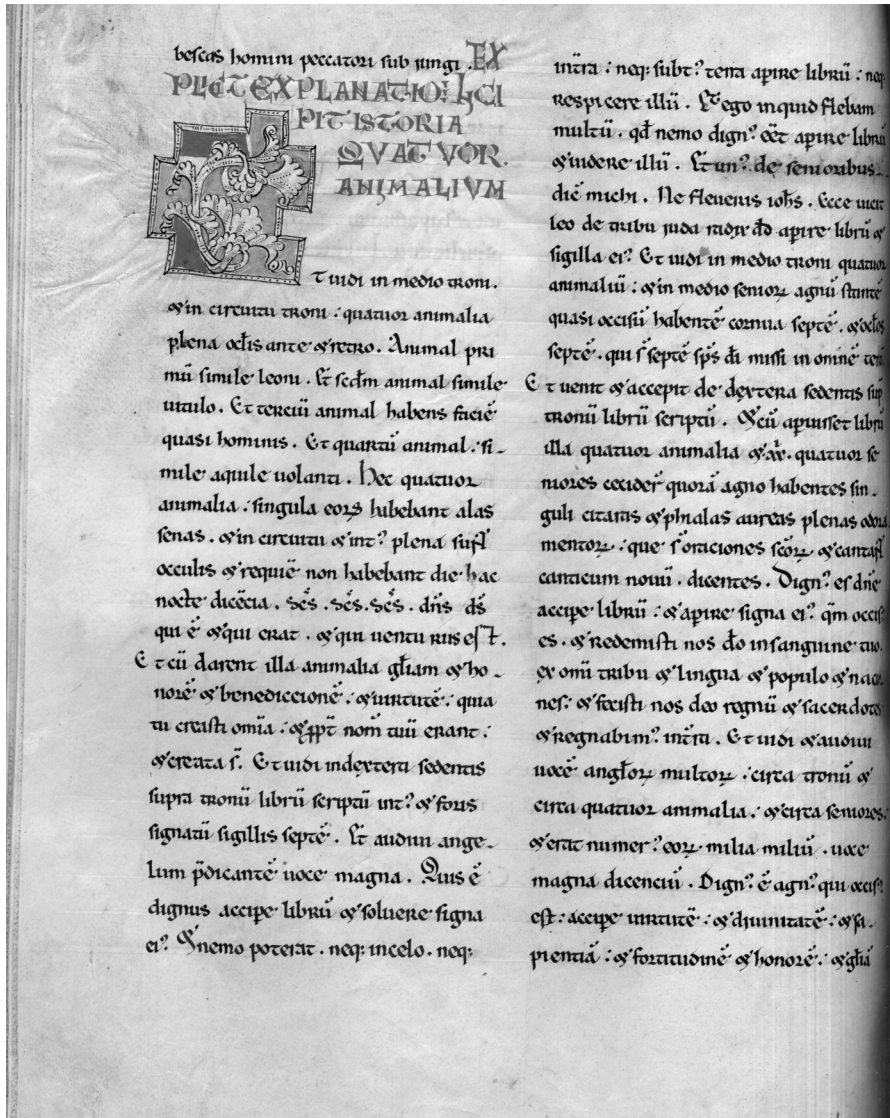 bescas homini peccatori sub iungi . EX
PLICIT EXPLANATIO : INCI
PIT ISTORIA
QVATVOR .
ANIMALIVM
T uidi in medio troni .
& in circuitu troni : quatuor animalia
plena oclis ante & retro . Animal pri
mũ simile leoni . Et scdm animal simile
uitulo . Et terciũ animal habens faciẽ
quasi hominis . Et quartũ animal : si-
mile aquile uolanti . Hec quatuor
animalia : singula eorꝝ habebant alas
senas . & in circuitu & int̾ plena sũt
occulis & requiẽ non habebant die hac
nocte dicẽcia . Scs̃ . Scs̃ . Scs̃ . dñs ds̃
qui ẽ & qui erat . & qui uenturus est .
Et cũ darent illa animalia gl̃iam & ho-
norẽ & benediccionẽ : & uirtutẽ : quia
tu creasti omĩa : & ꝓpt̃ nom̃ tuũ erant :
& creata s̃ . Et uidi in dextera sedentis
supra tronũ librũ scriptũ int̾ & foris
signatũ sigillis septẽ . Et audiui ange-
lum p̃dicantẽ uoce magna . Quis ẽ
dignus accipe librũ & soluere signa
ei̾ . & nemo poterat . neq; in celo . neq;
in t̃ra : neq; subt̾ terra apire librũ : neq;
respicere illũ . Et ego inquid flebam
multũ . qd̃ nemo dign̾ eẽt apire librũ
& uidere illũ . Et un̾ de senioribus
dix̃ michi . Ne fleueris ioh̃s . Ecce uicit
leo de tribu iuda radix dd̃ apire librũ &
sigilla ei̾ . Et uidi in medio troni quatuor
animaliũ : & in medio seniorꝝ agnũ stantẽ
quasi occisũ habentẽ cornua septẽ . & oclos
septẽ . qui s̃ septẽ sps̃ di missi in omnẽ terrã
Et uenit & accepit de dextera sedentis sup̃
tronũ librũ scriptũ . & cũ aperuisset librũ
illa quatuor animalia & xx̃ . quatuor se
niores cecider̃ quorã agno habentes sin-
guli citaras & phialas aureas plenas odora
mentorꝝ : que s̃ oraciones sc̃orꝝ & cantant
canticum nouũ . dicentes . Dign̾ es dñe
accipe librũ : & apire signa ei̾ qm̃ occis̾
es . & redemisti nos dõ in sanguine tuo .
ex omi tribu & lingua & populo & nacio
nes : & fecisti nos deo regnũ & sacerdotes
& regnabim̾ in t̃ra . Et uidi & audiui
uocẽ angl̃orꝝ multorꝝ . circa tronũ &
circa quatuor animalia : & circa seniores .
& erat numer̾ eorꝝ milia miliũ . uoce
magna dicenciũ . Dign̾ ẽ agn̾ qui occis̾
est : accipe uirtutẽ : & diuinitatẽ : & sa-
pientiã : & fortitudinẽ & honorẽ : & gl̃iã